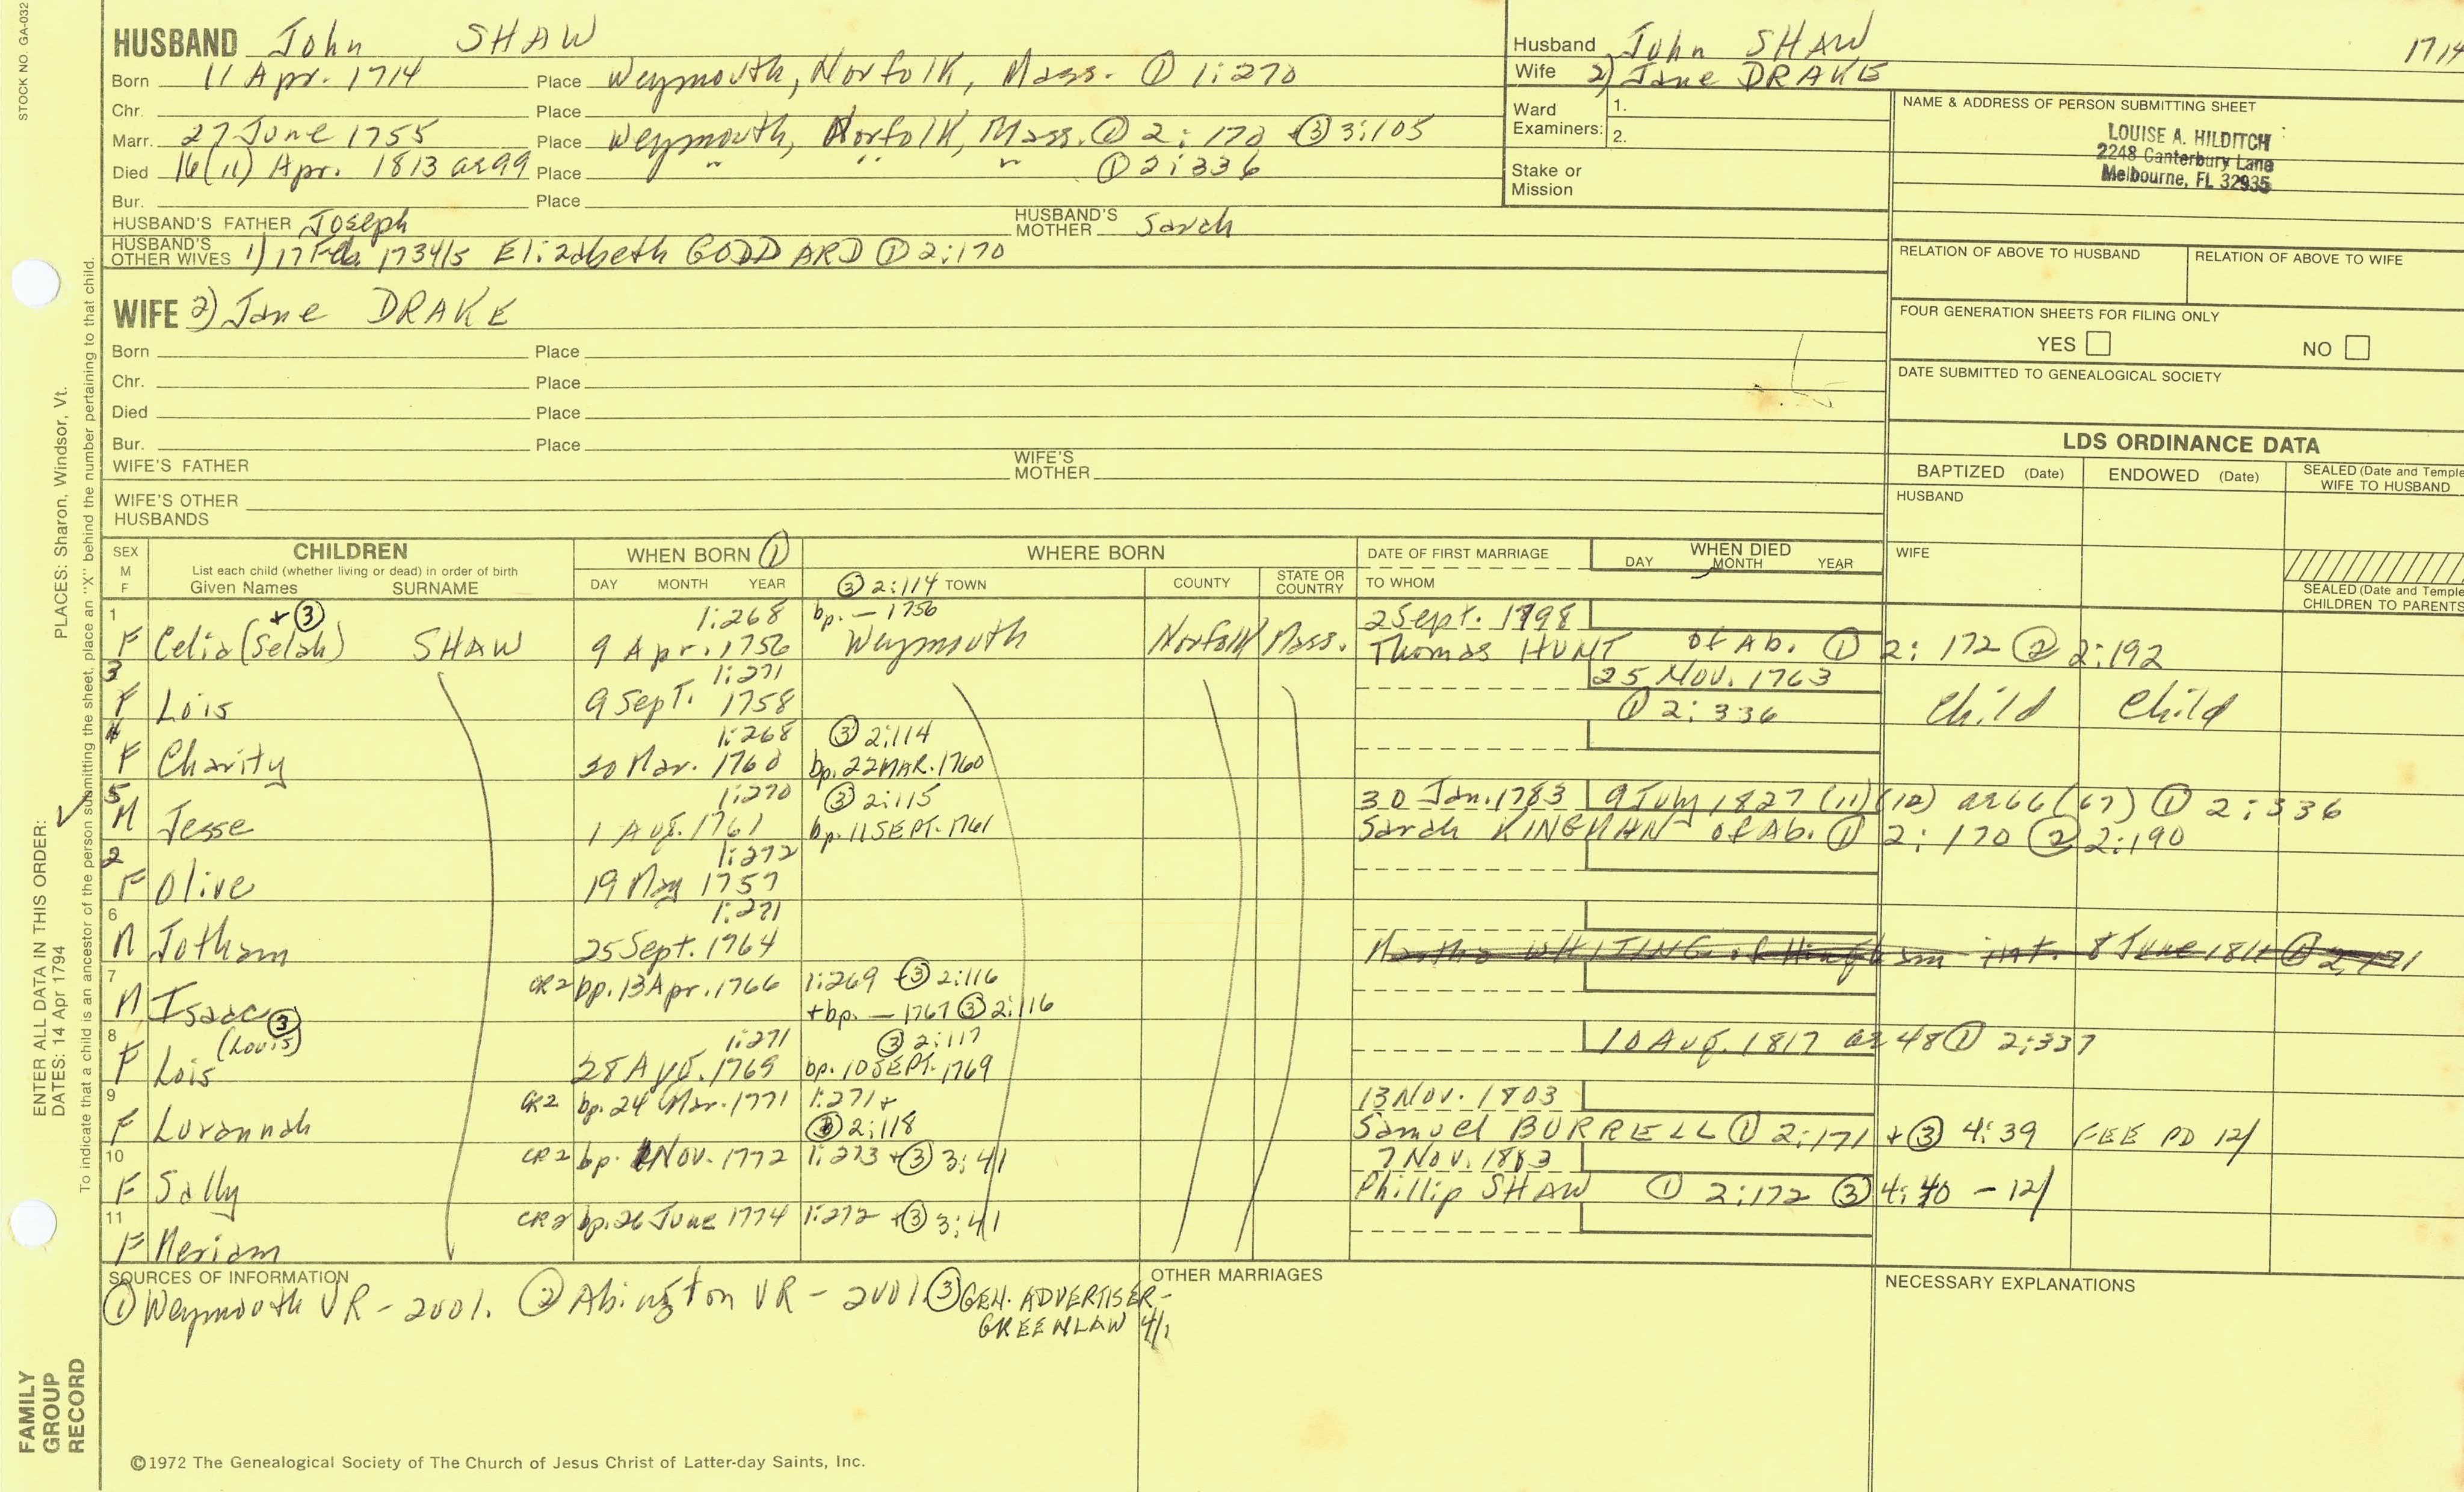 STOCK NO. GA-032
HUSBAND John SHAW
Born 11 Apr. 1714 Place Weymouth, Norfolk, Mass. ① 1:270
Chr. Place
Marr. 27 June 1755 Place Weymouth, Norfolk, Mass. ① 2:170 + ③ 3:105
Died 16(11) Apr. 1813 ae 99 Place " " " ① 2:336
Bur. Place
HUSBAND'S FATHER Joseph HUSBAND'S MOTHER Sarah
HUSBAND'S OTHER WIVES 1) 17 Feb. 1734/5 Elizabeth GODDARD ① 2:170
Husband John SHAW 1714
Wife 2) Jane DRAKE
Ward Examiners: 1.
2.
Stake or Mission
NAME & ADDRESS OF PERSON SUBMITTING SHEET
LOUISE A. HILDITCH
2248 Canterbury Lane
Melbourne, FL 32935
RELATION OF ABOVE TO HUSBAND RELATION OF ABOVE TO WIFE
FOUR GENERATION SHEETS FOR FILING ONLY
YES NO
DATE SUBMITTED TO GENEALOGICAL SOCIETY
WIFE 2) Jane DRAKE
Born Place
Chr. Place
Died Place
Bur. Place
WIFE'S FATHER WIFE'S MOTHER
WIFE'S OTHER HUSBANDS
LDS ORDINANCE DATA
BAPTIZED (Date) ENDOWED (Date) SEALED (Date and Temple WIFE TO HUSBAND
HUSBAND
WIFE
SEALED (Date and Temple CHILDREN TO PARENTS
SEX M F CHILDREN List each child (whether living or dead) in order of birth Given Names SURNAME
WHEN BORN ① DAY MONTH YEAR
WHERE BORN ③ 2:114 TOWN COUNTY STATE OR COUNTRY
DATE OF FIRST MARRIAGE TO WHOM
WHEN DIED DAY MONTH YEAR
1 + ③ 1:268 bp. — 1756 2 Sept. 1798
F Celia (Selah) SHAW 9 Apr. 1756 Weymouth Norfolk Mass. Thomas HUNT of Ab. ① 2:172 ② 2:192
3 1:271 25 Nov. 1763
F Lois 9 Sept. 1758 ① 2:336 Child Child
4 1:268 ③ 2:114
F Charity 20 Mar. 1760 bp. 22 MAR. 1760
5 1:270 ③ 2:115 30 Jan. 1783 9 July 1827 (11) (12) ae 66 (67) ① 2:336
M Jesse 1 Aug. 1761 bp. 11 SEPT. 1761 Sarah KINGMAN of Ab. ① 2:170 ② 2:190
2 1:272
F Olive 19 May 1757
6 1:271
M Jotham 25 Sept. 1764 Martha WHITING of Hingham int. 8 June 1811 ① 2:171
7 CR2 bp. 13 Apr. 1766 1:269 + ③ 2:116
M Isaac + bp. — 1767 ③ 2:116
8 ③ (Louis) 1:271 ③ 2:117 10 Aug. 1817 ae 48 ① 2:337
F Lois 28 Aug. 1769 bp. 10 SEPT. 1769
9 CR2 bp. 24 Mar. 1771 1:271 + 13 Nov. 1803
F Lurannah ③ 2:118 Samuel BURRELL ① 2:171 + ③ 4:39 FEE PD 12/
10 CR2 bp. 1 Nov. 1772 1:273 + ③ 3:41 7 Nov.
F Sally Phillip SHAW ① 2:172 ③ 4:40 - 12/
11 CR2 bp. 26 June 1774 1:272 + ③ 3:41
F Meriam
SOURCES OF INFORMATION
① Weymouth VR - 2001. ② Abington VR - 2001. ③ GEN. ADVERTISER -
GREENLAW 4/1
OTHER MARRIAGES
NECESSARY EXPLANATIONS
©1972 The Genealogical Society of The Church of Jesus Christ of Latter-day Saints, Inc.
PLACES: Sharon, Windsor, Vt.
ENTER ALL DATA IN THIS ORDER:
DATES: 14 Apr 1794
To indicate that a child is an ancestor of the person submitting the sheet, place an "X" behind the number pertaining to that child.
FAMILY
GROUP
RECORD